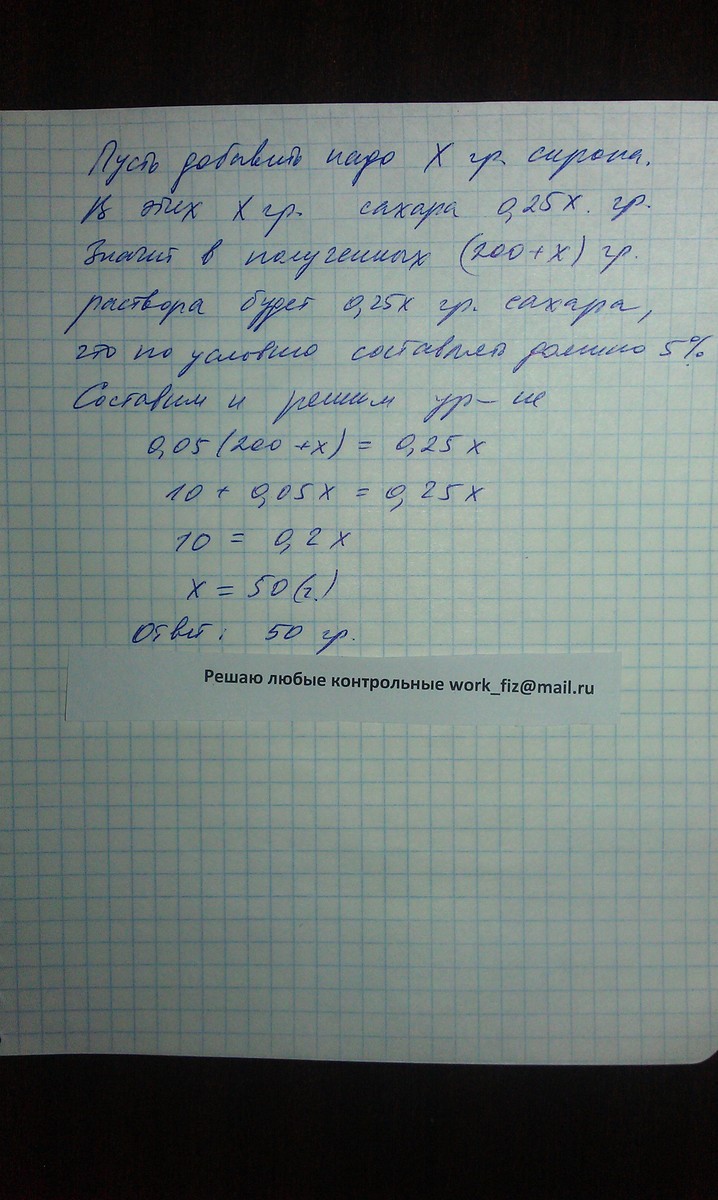 Пусть добавить надо X гр. сиропа.
В этих X гр. сахара 0,25x. гр.
Значит в полученных (200+x) гр.
раствора будет 0,25x гр. сахара,
что по условию составлять должно 5%
Составим и решим ур-ие
0,05(200+x) = 0,25x
10 + 0,05x = 0,25x
10 = 0,2x
x = 50(г.)
Ответ: 50 гр.
Решаю любые контрольные work_fiz@mail.ru